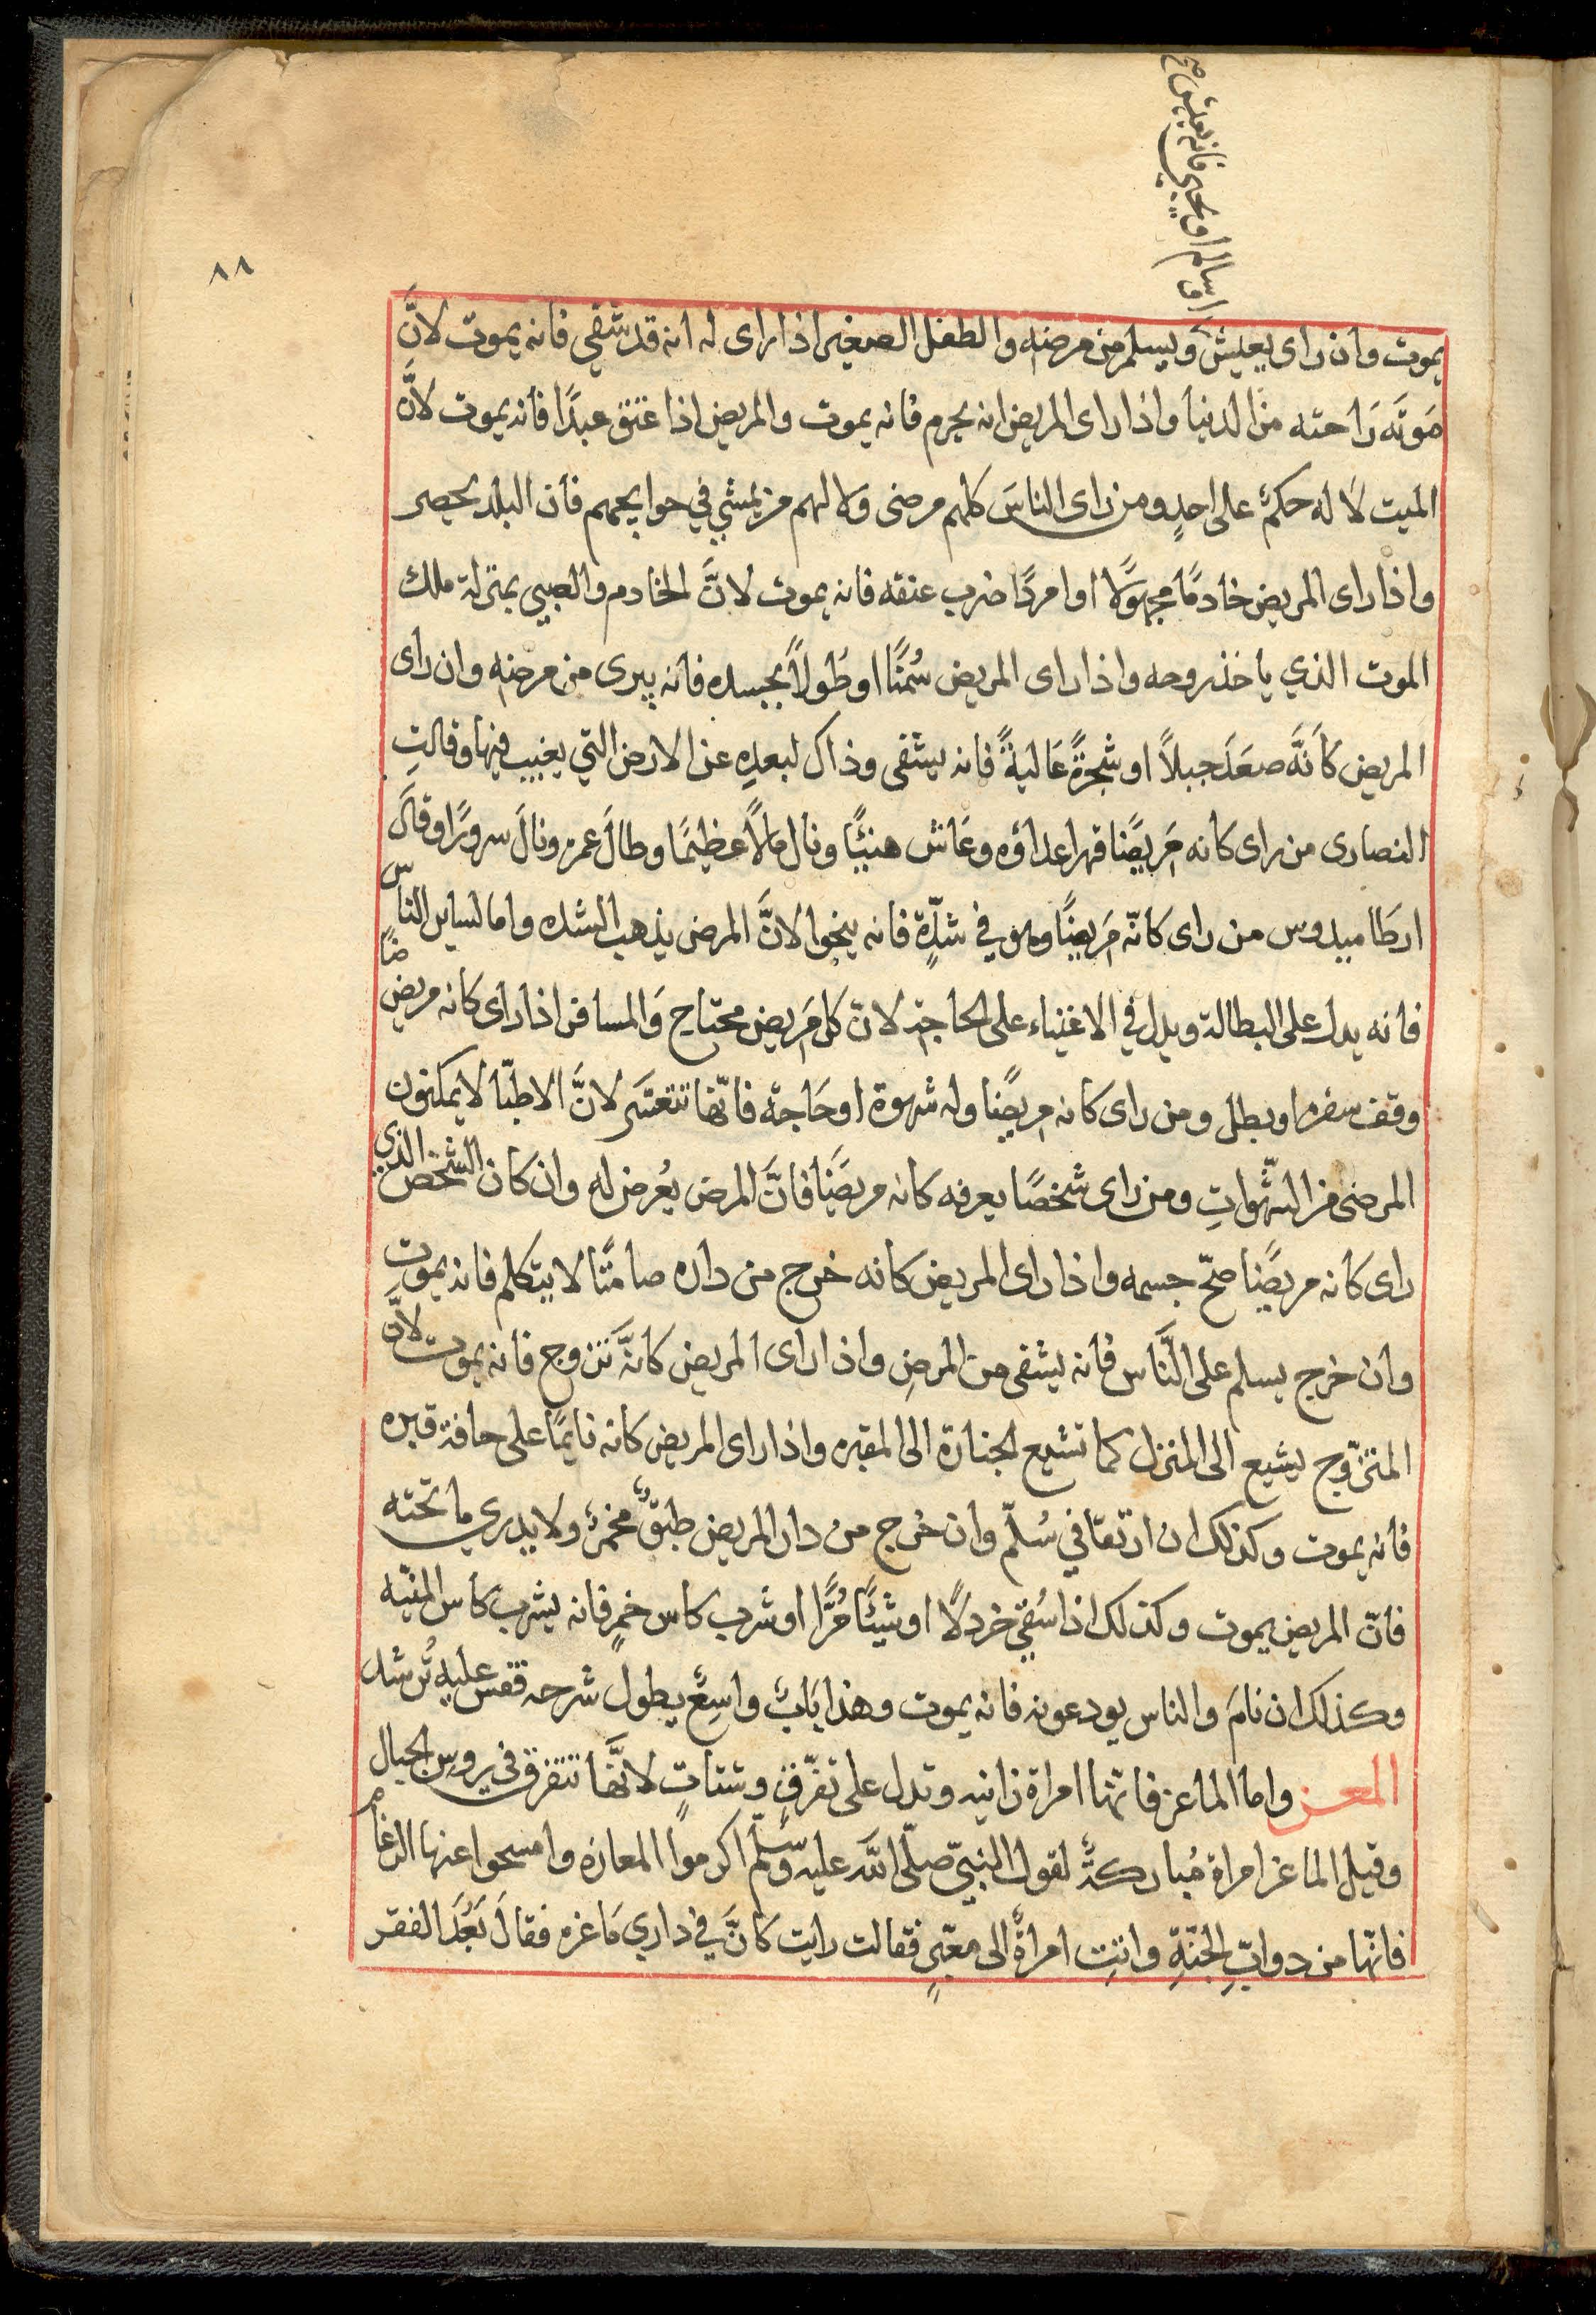 او سالم او يحيى فانه يعيش صح
٨٨
يموت وان راى يعيش ويسلم من مرضه والطفل الصغير اذا راى له انه قد شفي فانه يموت لانَّ
مَوتَه رَاحته من الدنيا واذا راى المريض انه يحرم فانه يموت والمريض اذا عتق عبدًا فانه يموت لانَّ
الميت لا له حكمٌ على احدٍ ومن راى الناسَ كلهم مرضى ولا لهم من يمشي في حوايجهم فان البلد يحصر
واذا راى المريض خادمًا مجهولًا او امردًا ضرب عنقه فانه يموت لانَّ الخادم والصبي بمنزلة ملك
الموت الذي ياخذ روحه واذا راى المريض سُمنًا او طُولًا بجسده فانه يبرى من مرضه وان راى
المريض كاَنَّه صعَدَ جبلًا او شجرةً عَاليةً فانه يشفى وذاك لبعدِه عن الارض التي يغيب فيها وقالتِ
النصارى من راى كانه مَريضًا قهر اعداؤه وعَاش هنيئًا ونال مالًا عظيمًا وطالَ عمره ونالَ سرورًا وقالَ
ارطَاميدوس من راى كانّه مَريضًا وهو في شدّةٍ فانه ينجوا لانَّ المرض يذهب الشده واما لساير الناس
فانه يدل على البطالة ويدل في الاغنياء على الحاجة لانّ كل مَريض محتاج وَالمسافر اذا راى كانه مريضًا
وقف سفره او بطل ومن راى كانه مريضًا وله شهوة او حَاجة فانّها تتعسّر لانَّ الاطبّا لا يمكنون
المرضى من الشّهواتِ ومن راى شخصًا يعرفه كانه مريضًا فانَّ المرض يعُرض له وان كان الشخص الذي
راى كانه مريضًا صحّ جسمه واذا راى المريض كانه خرج من داره صامتًا لا يتكلم فانه يموت
وان خرج يسلم على النَّاس فانه يشفى من المرضِ واذا راى المريض كانَّه تزوج فانه يموت لانَّ
المتزّوج يشيع الى المنزل كما تشيع الجنازة الى المقبره واذا راى المريض كانه نايمًا على حافة قبره
فانه يموت وكذلك ان ارتقا في سُلّم وان خرج من دار المريض طبقٌ مخمرٌ ولا يدري ما تحته
فانّ المريض يموت وكذلك اذا سُقي خردلًا او شيئًا مُرًّا او شرب كاس خمرٍ فانه يشرب كاس المنيّه
وكذلك ان نامَ والناس يودعونه فانه يموت وهذا بَابٌ واسِعٌ يطول شرحه فقس عليه تُرشد
المعز واما الماعز فانّها امراة زانيه وتدل على تفرّقٍ وشتاتٍ لانَّها تتفرق في روس الجبال
وقيل الماعز امراة مُباركةٌ لقول النبيّ صلّى الله عليه وسلّم اكرموا المعازه وامسحوا عنها الرغام
فانّها من دوابّ الجنّةِ واتتِ امراةٌ الى معبّرٍ فقالت رايت كانَّ في داري مَاعزه فقالَ بَعُدَ الفقر